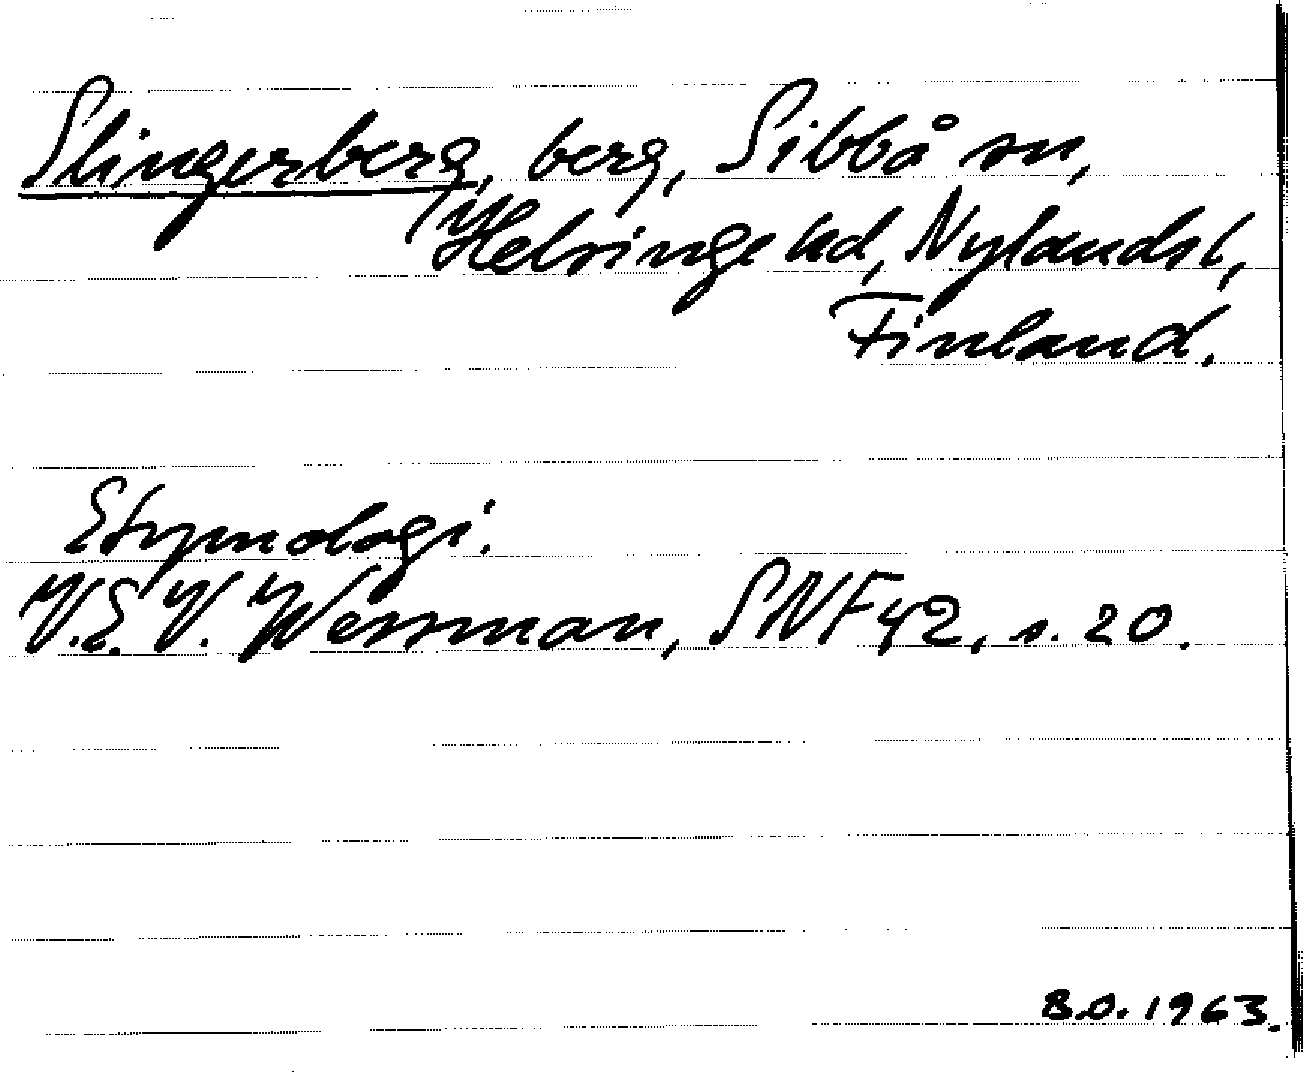 Slingerberg, berg, Sibbå sn,
Helsinge hd, Nylands l,
Finland.
Etymologi.
V.E.V. Wessman, SNF 42, s. 20.
B.O. 1963.